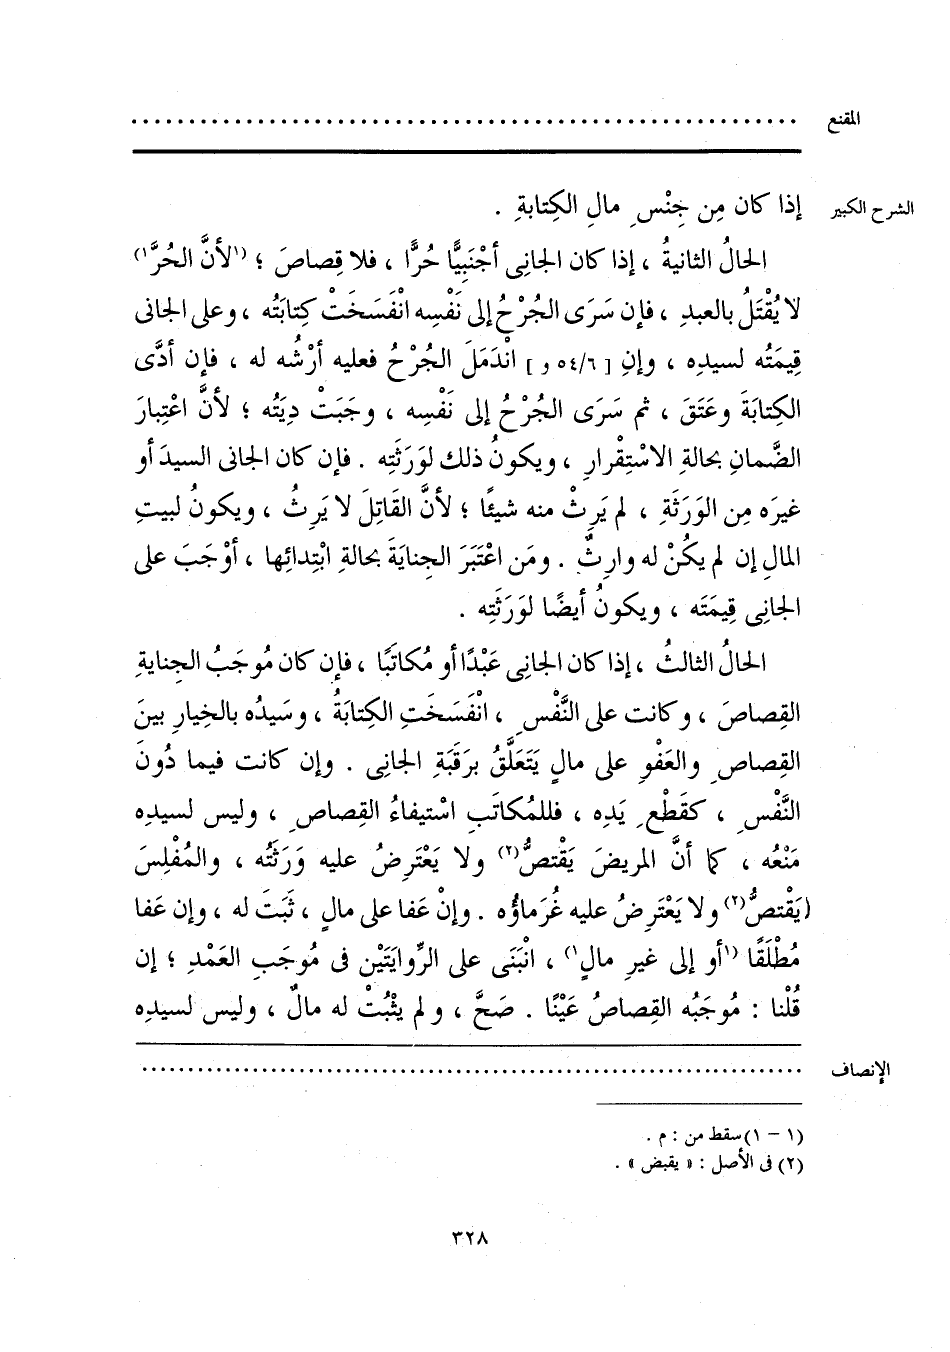 المقنع ............................................................
الشرح الكبير إذا كان مِن جِنْسِ مالِ الكِتابةِ .
الحالُ الثانيةُ ، إذا كان الجانِى أجْنَبِيًّا حُرًّا ، فلا قِصاصَ ؛ (١لأنَّ الحُرَّ١)
لا يُقْتَلُ بالعبدِ ، فإن سَرَى الجُرْحُ إلى نَفْسِه انْفَسَخَتْ كِتابَتُه ، وعلى الجانى
قِيمَتُه لسيدِه ، وإنِ [ ٥٤/٦ و ] انْدَمَلَ الجُرْحُ فعليه أرْشُه له ، فإن أدَّى
الكِتابَةَ وعَتَقَ ، ثم سَرَى الجُرْحُ إلى نَفْسِه ، وجَبَتْ دِيَتُه ؛ لأنَّ اعْتِبارَ
الضَّمانِ بحالةِ الاسْتِقْرارِ ، ويكونُ ذلك لوَرَثَتِه . فإن كان الجانى السيدَ أو
غيرَه مِن الوَرَثَةِ ، لم يَرِثْ منه شيئًا ؛ لأنَّ القاتِلَ لا يَرِثُ ، ويكونُ لبيتِ
المالِ إن لم يكُنْ له وارِثٌ . ومَن اعْتَبَرَ الجِنايَةَ بحالةِ ابْتِدائِها ، أوْجَبَ على
الجانِى قِيمَتَه ، ويكونُ أيضًا لوَرَثَتِه .
الحالُ الثالثُ ، إذا كان الجانِى عَبْدًا أو مُكاتَبًا ، فإن كان مُوجَبُ الجِنايةِ
القِصاصَ ، وكانت على النَّفْسِ ، انْفَسَخَتِ الكِتابَةُ ، وسَيدُه بالخِيارِ بينَ
القِصاصِ والعَفْوِ على مالٍ يَتَعَلَّقُ برَقَبَةِ الجانِى . وإن كانت فيما دُونَ
النَّفْسِ ، كقَطْعِ يَدِه ، فللمُكاتَبِ اسْتِيفاءُ القِصاصِ ، وليس لسيدِه
مَنْعُه ، كما أنَّ المريضَ يَقْتصُّ(٢) ولا يَعْتَرِضُ عليه وَرَثَتُه ، والمُفْلِسَ
يَقْتصُّ(٢) ولا يَعْتَرِضُ عليه غُرَماؤُه . وإنْ عَفا على مالٍ ، ثَبَتَ له ، وإن عَفا
مُطْلَقًا (١أو إلى غيرِ مالٍ١) ، انْبَنَى على الرِّوايَتَيْن فى مُوجَبِ العَمْدِ ؛ إن
قُلْنا : مُوجَبُه القِصاصُ عَيْنًا . صَحَّ ، و لم يَثْبُتْ له مالٌ ، وليس لسيدِه
الإنصاف ............................................................
(١ – ١) سقط من : م .
(٢) فى الأصل : « يقبض » .
٣٢٨